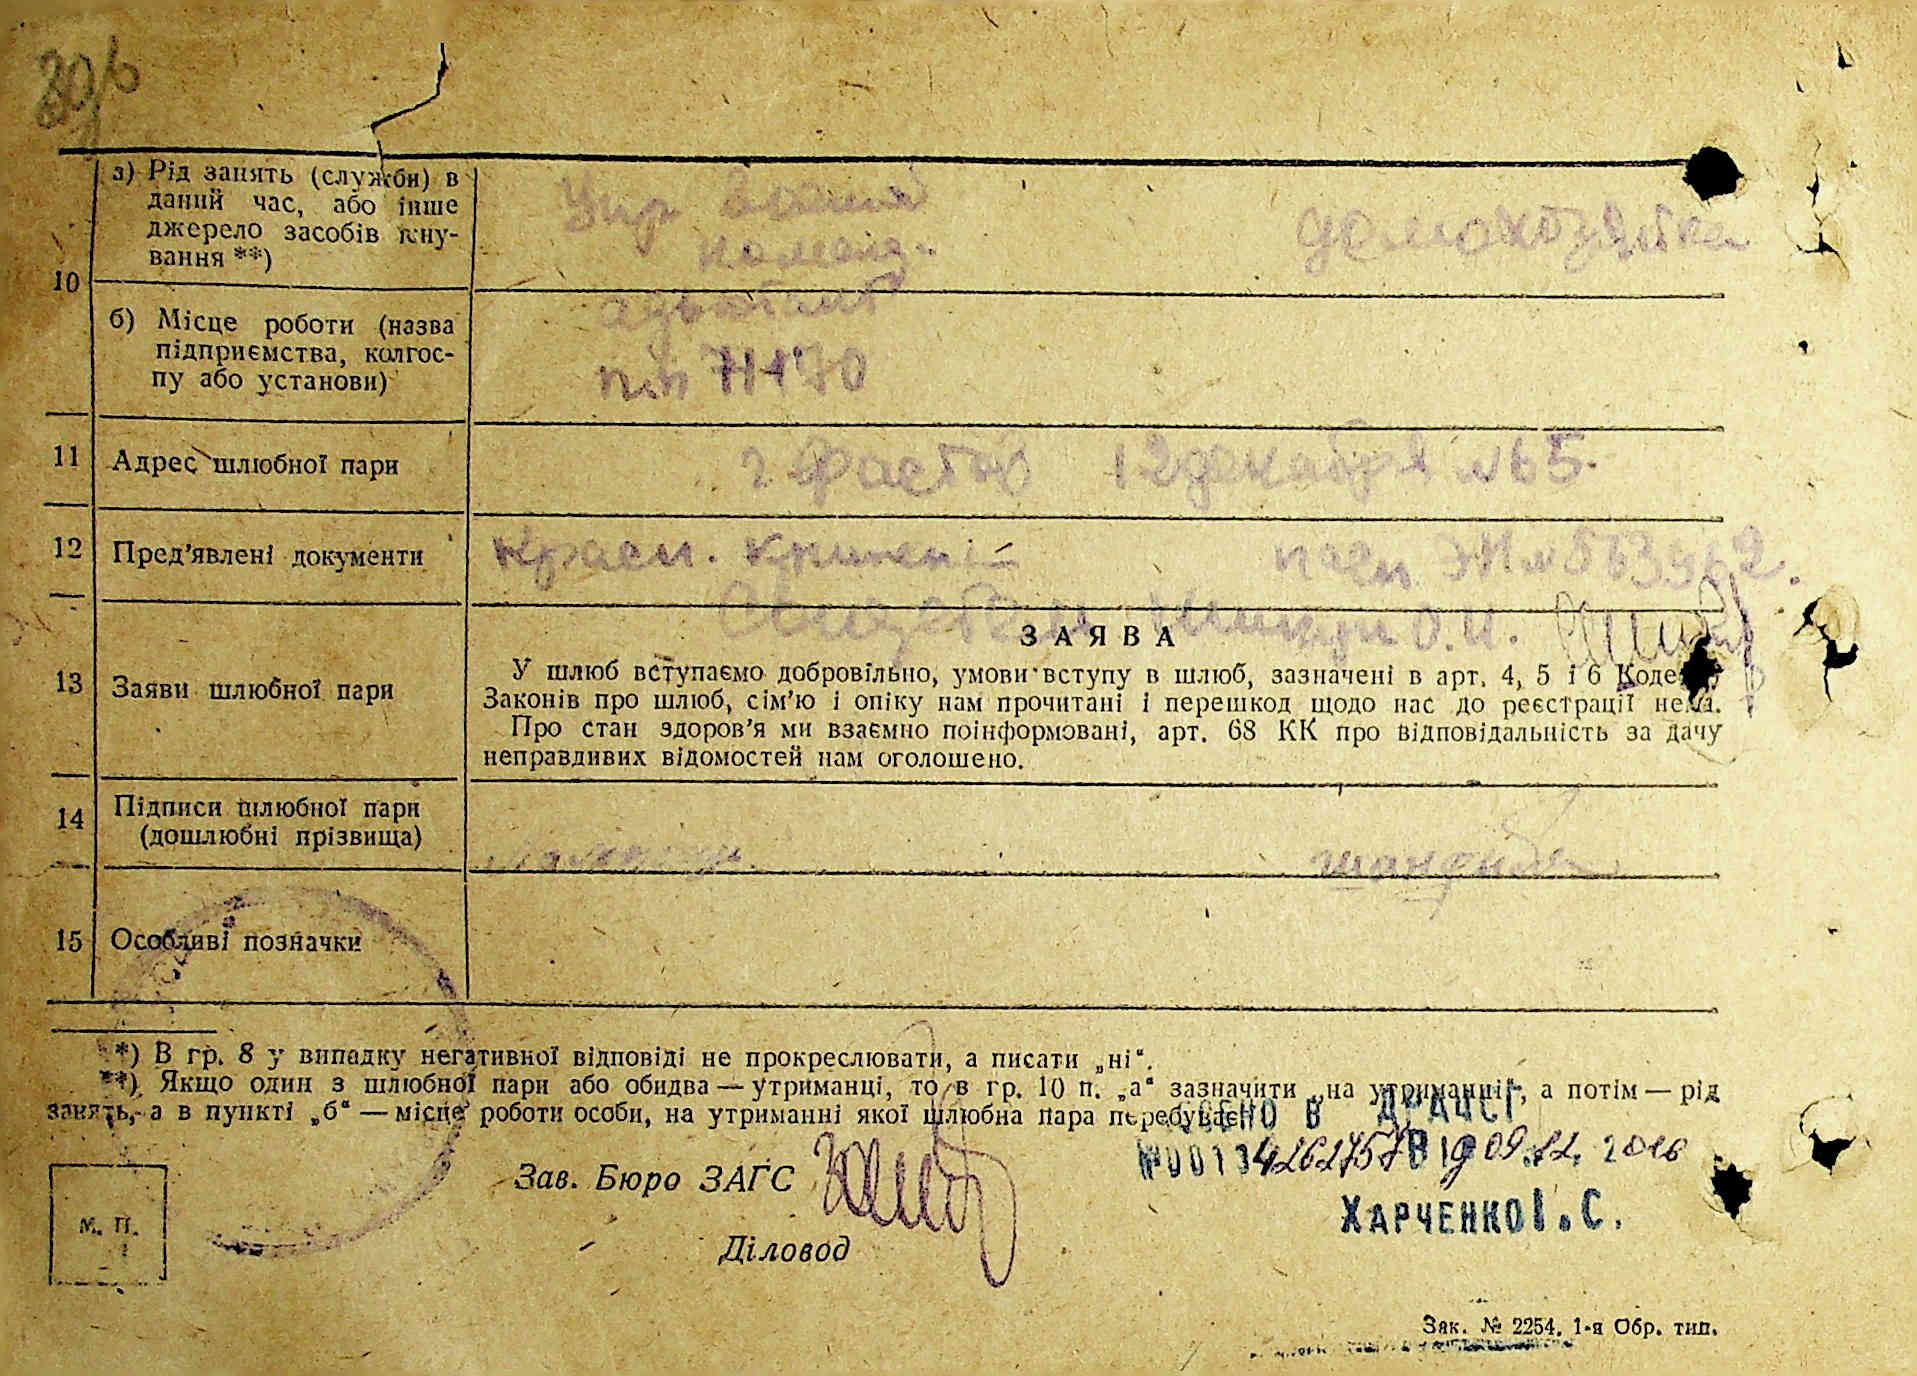 а) Рід занять (служби) в
даний час, або інше
джерело засобів існу-
вання **)
команд.
домохозяйка
10
б) Місце роботи (назва
підприємства, колгос-
пу або установи)
адъютант
п.п 71170
11 Адрес шлюбної пари г Фастов 12 декабря №65.
12 Пред’явлені документи Красн. пасп ЭЖ №
13 Заяви шлюбної пари
О.И.
ЗАЯВА
У шлюб вступаємо добровільно, умови вступу в шлюб, зазначені в арт. 4, 5 і 6 Коде
Законів про шлюб, сім’ю і опіку нам прочитані і перешкод щодо нас до реєстрації нема.
Про стан здоров’я ми взаємно поінформовані, арт. 68 КК про відповідальність за дачу
неправдивих відомостей нам оголошено.
14 Підписи шлюбної пари
(дошлюбні прізвища)
15 Особливі позначки
*) В гр. 8 у випадку негативної відповіді не прокреслювати, а писати „ні“.
**) Якщо один з шлюбної пари або обидва — утриманці, то в гр. 10 п. „а“ зазначити „на утриманні“, а потім — рід
занять, а в пункті „б“ — місце роботи особи, на утриманні якої шлюбна пара перебуває.
ЕНО В ДРАЦСГ
№00134262757 ВІД 09.12.2016
ХАРЧЕНКО І.С.
Зав. Бюро ЗАГС
Діловод
М. П.
Зак. № 2254. 1-я Обр. тип.